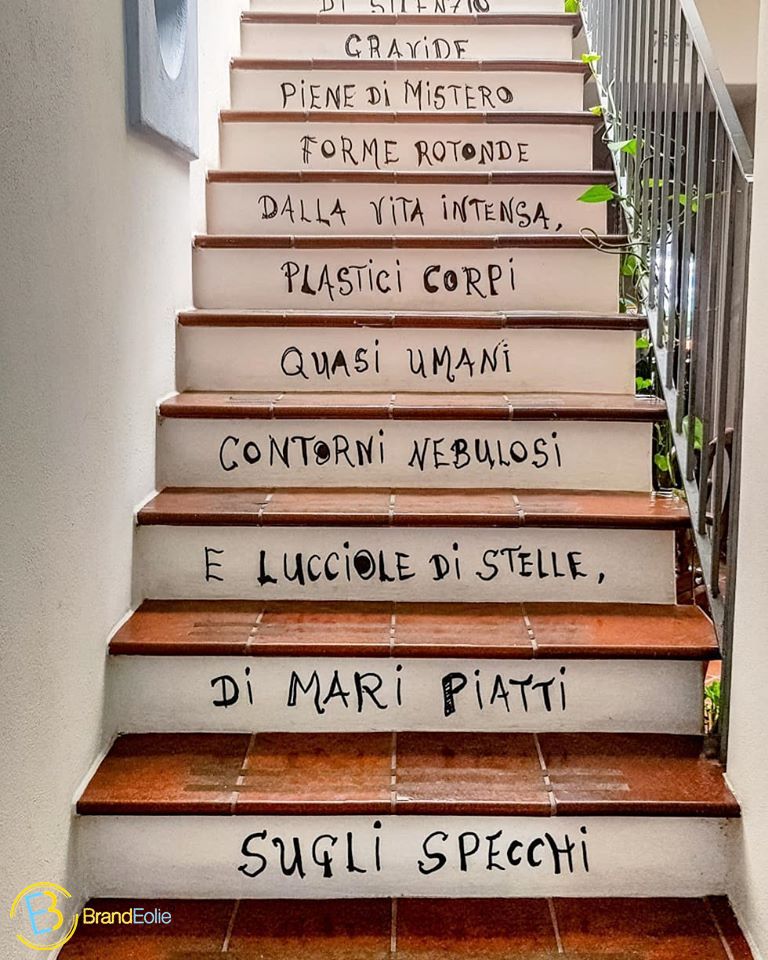 DI SILENZIO
GRAVIDE
PIENE DI MISTERO
FORME ROTONDE
DALLA VITA INTENSA,
PLASTICI CORPI
QUASI UMANI
CONTORNI NEBULOSI
E LUCCIOLE DI STELLE,
DI MARI PIATTI
SUGLI SPECCHI
BrandEolie